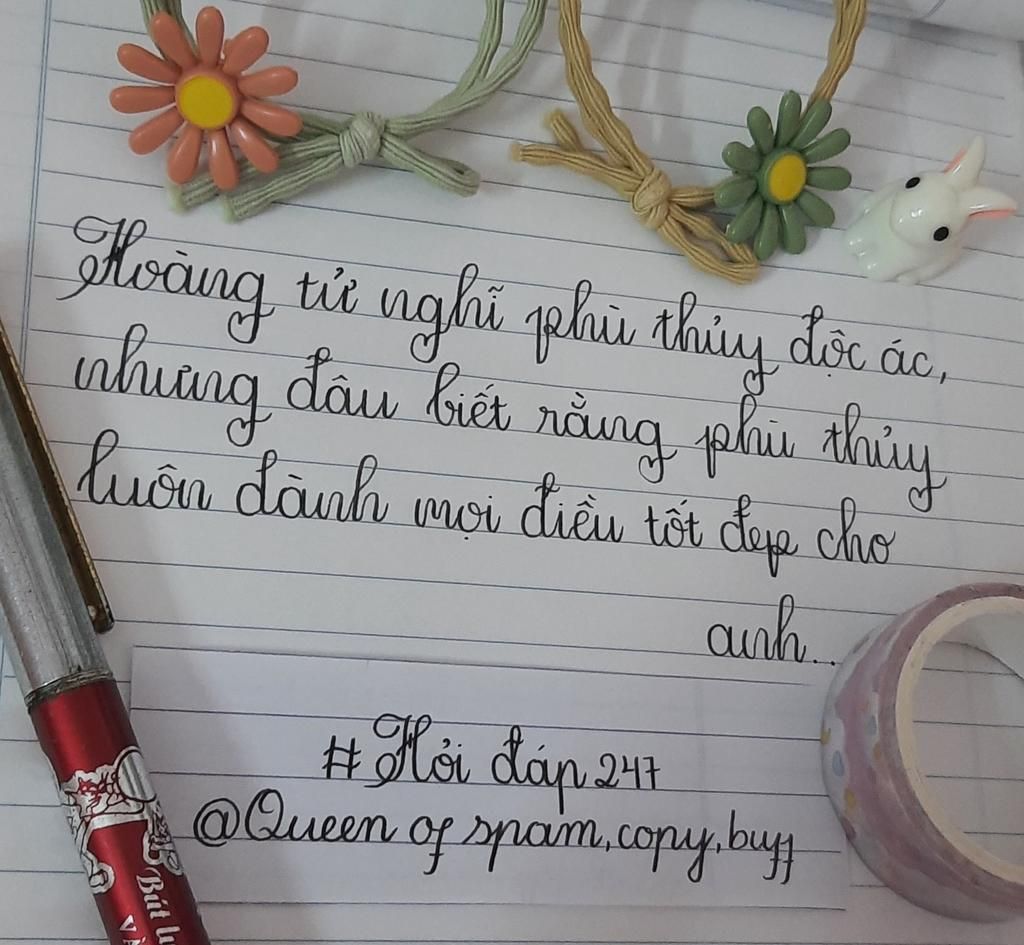 Hoàng tử nghĩ phù thủy độc ác,
nhưng đâu biết rằng phù thủy
luôn dành mọi điều tốt đẹp cho
anh...
# Hỏi đáp 247
@Queen of spam, copy, buff
Bút